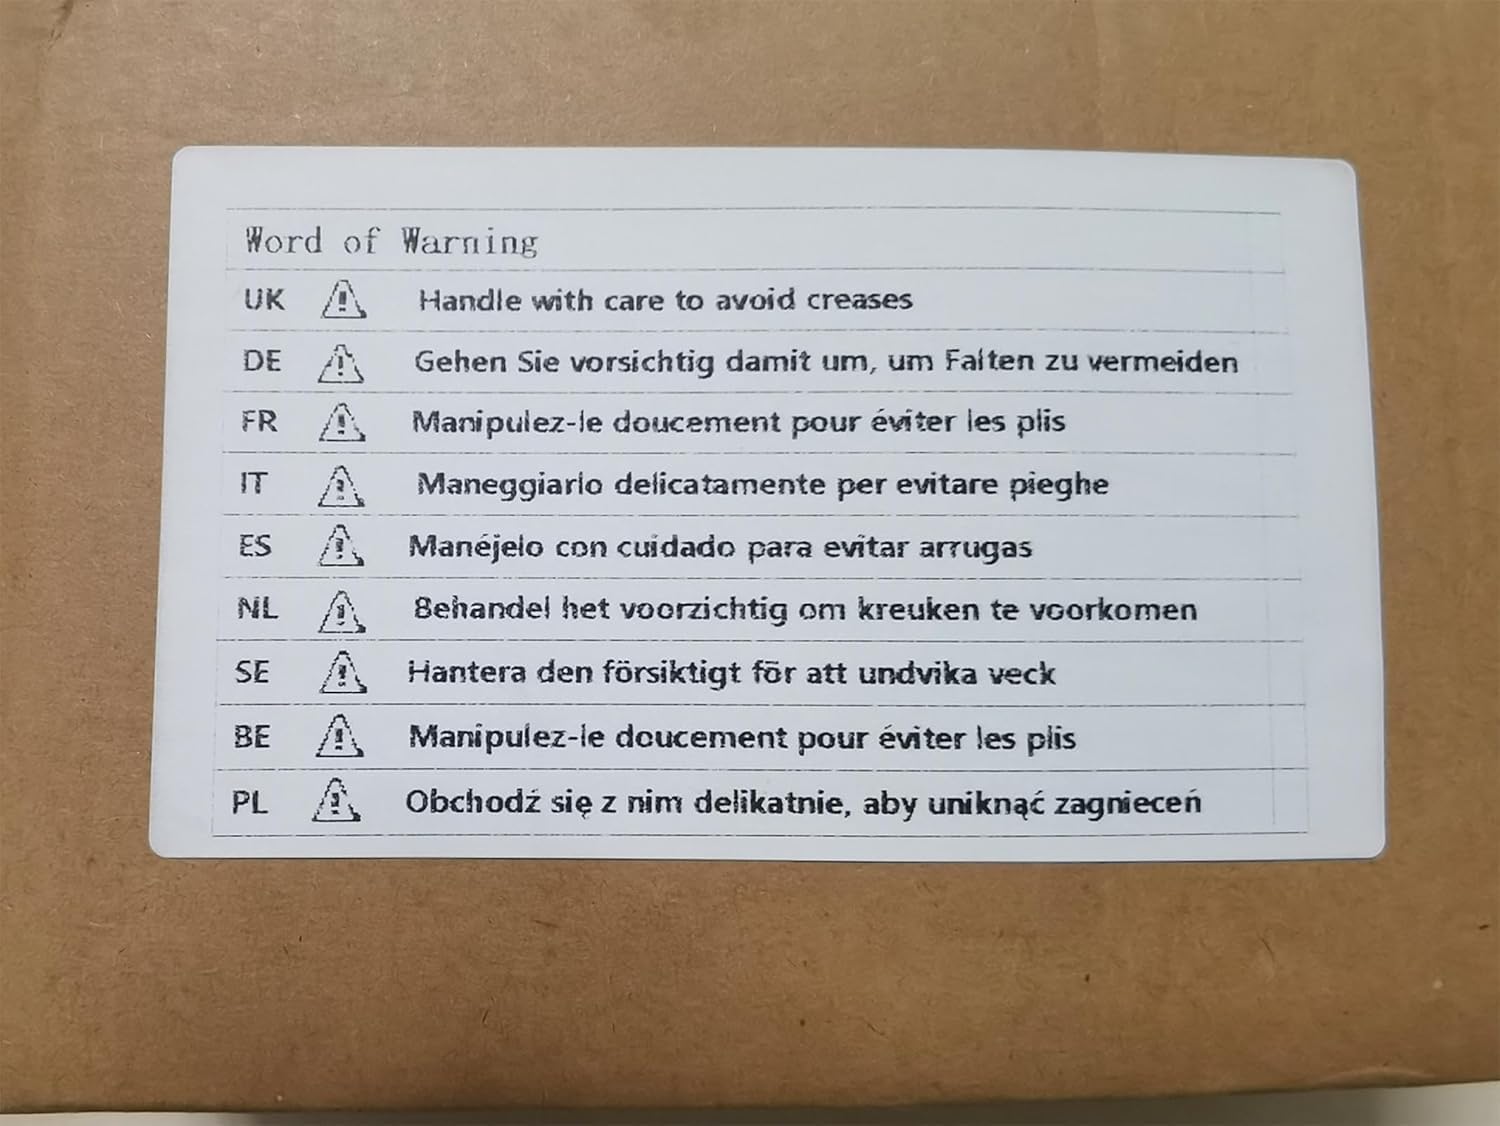 Word of Warning
UK Handle with care to avoid creases
DE Gehen Sie vorsichtig damit um, um Falten zu vermeiden
FR Manipulez-le doucement pour éviter les plis
IT Maneggiarlo delicatamente per evitare pieghe
ES Manéjelo con cuidado para evitar arrugas
NL Behandel het voorzichtig om kreuken te voorkomen
SE Hantera den försiktigt för att undvika veck
BE Manipulez-le doucement pour éviter les plis
PL Obchodź się z nim delikatnie, aby uniknąć zagnieceń